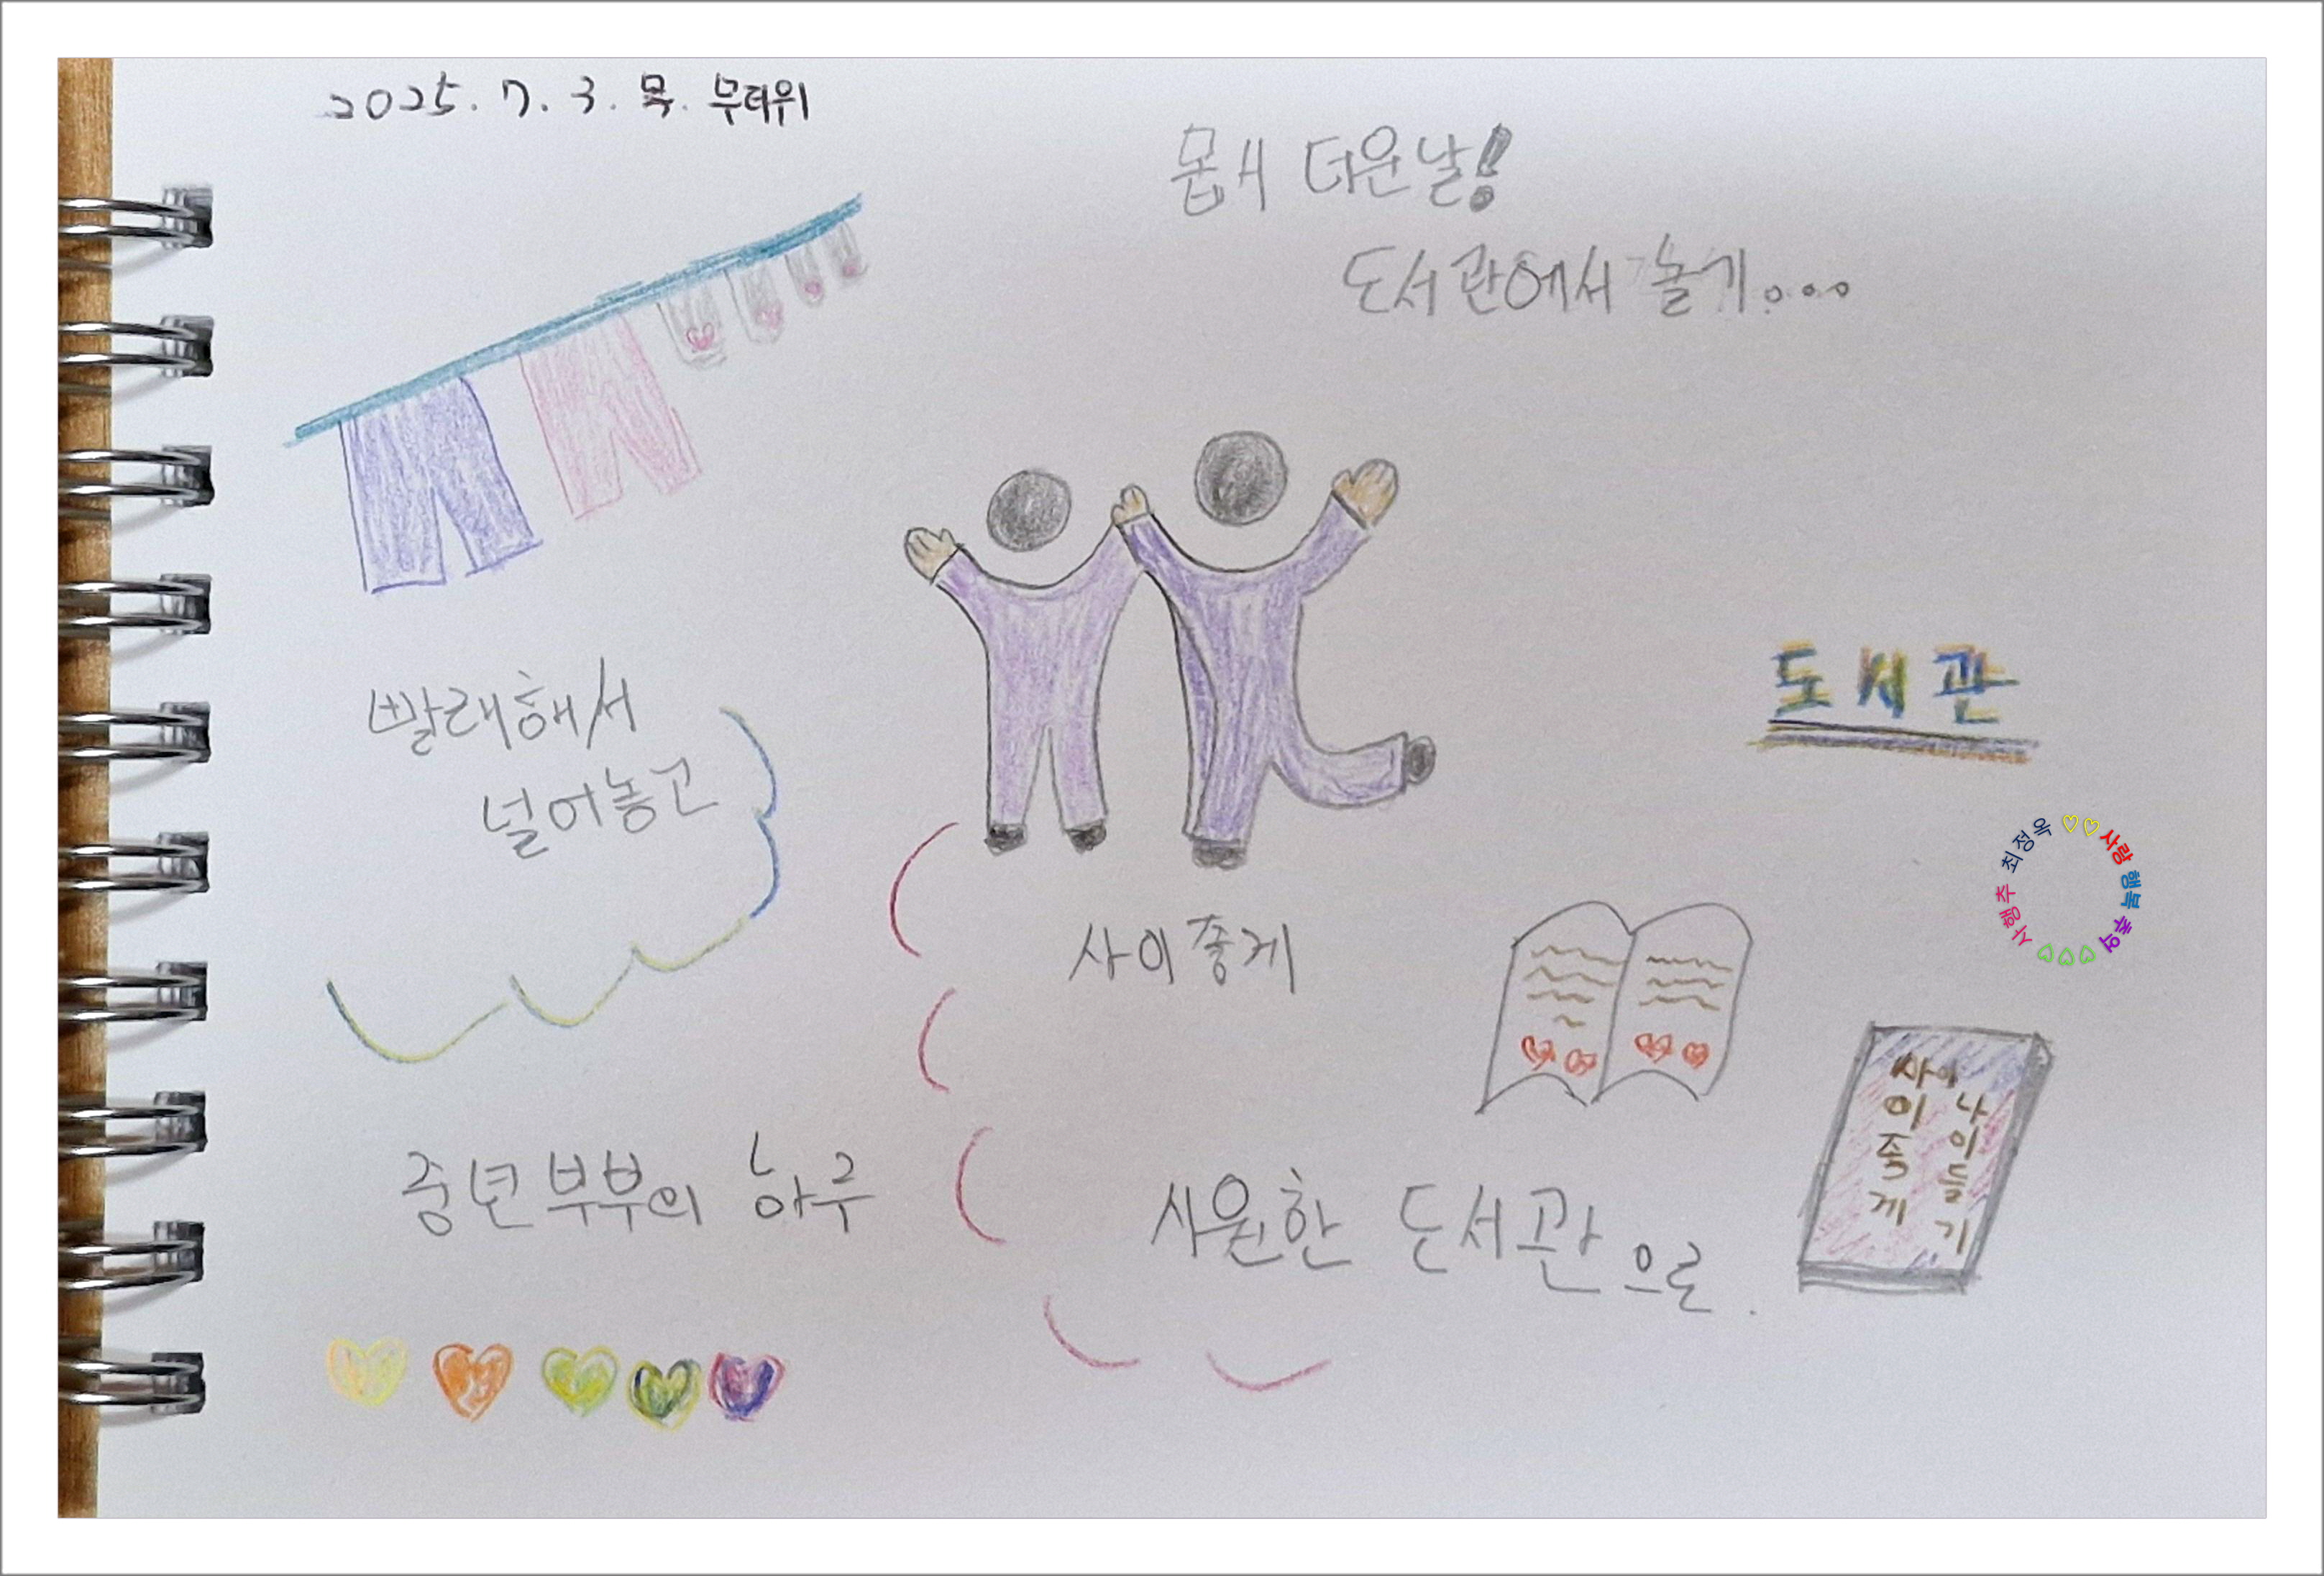 2025. 7. 3. 목. 무더위
몹시 더운날!
도서관에서 놀기...
빨래해서
널어놓고
도서관
사이좋게
중년부부의 하루
시원한 도서관으로.
최정옥 ♡♡ 사랑 행복 추억 ♡♡♡ 사행추
나이들기